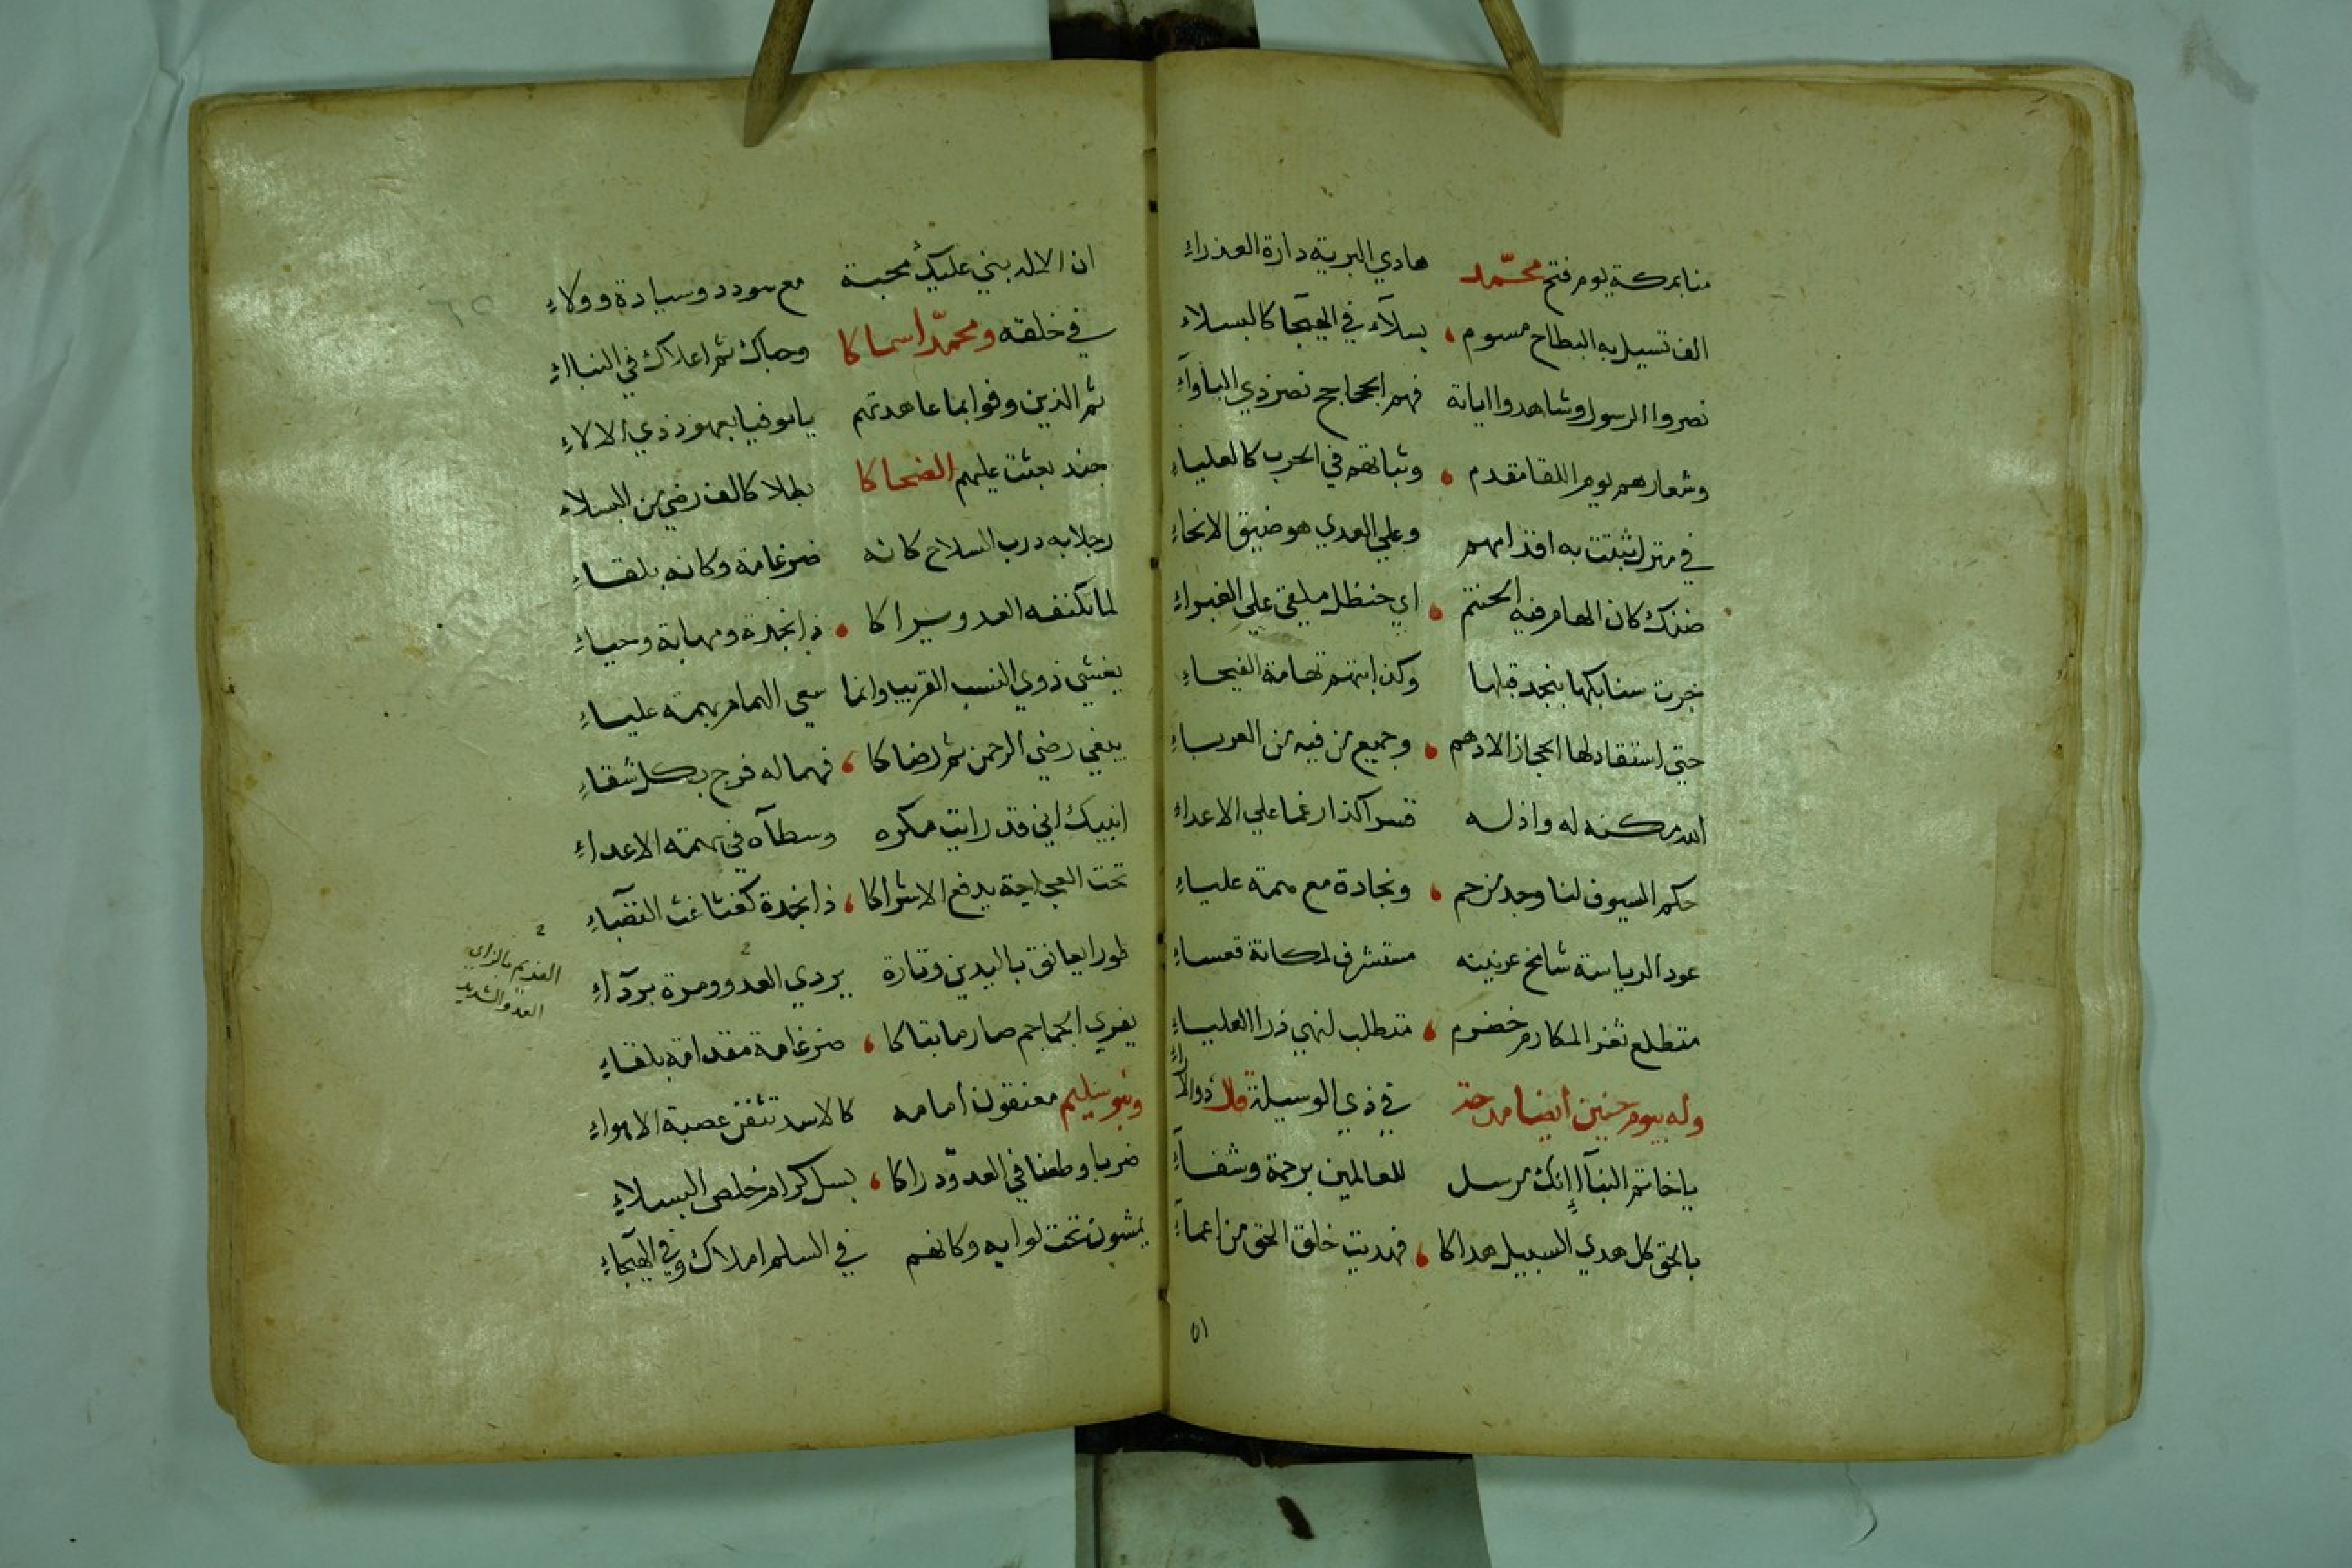 منا بمكة يوم فتح محمّد هادي البرية دارة العذراءِ
الف تسيل به البطاح مسوم ، بسلآء في الهيجآ كالبسلاء
نصروا الرسول وشاهدوا اياته فهم الجحاجح نصر ذي الباوآءِ
وشعارهم يوم اللقا مقدم ، وثباتهم في الحرب كالعلياءِ
في منزل ثبتت به اقدامهم وعلي العدي هو ضيق الانحاءِ
ضنك كان الهام فيه الحنتم ، اي حنظل ملقي علي الغبراءِ
جرت سنابكها بنجد قبلها وكذا بتهم تهامة الفيحاءِ
حتي استقاد لها الحجاز الادهم ، وجميع من فيه من العرباءِ
الله مكنه له واذله قسرا كذا رغما علي الاعداءِ
حكم السيوف لنا وجد مزحم ، ونجادة مع همة علياءِ
عود الرياسة شامخ عرنينه مستشرف لمكانة قعساءِ
متطلع ثغر المكارم خضرم ، متطلب لنهي ذرا العلياءِ
وله بيوم حنين ايضا مدحة في ذي الوسيلة قلا ذوالاراءِ
ياخاتم النبآاِ انك مرسل للعالمين برحمة وشفآءِ
بالحق كل هدي السبيل هداكا ، فهديت خلق الحق من اعمآءِ
٥١
ان الاله بني عليك محبة مع سودد وسيادة وولاءِ
في خلقه ومحمّدا سماكا وحباك ثم اعلاك في النبااءِ
ثم الذين وفوا بما عاهدتهم ياموفيا بعهود ذي الالاءِ
جند بعثت عليهم الضحاكا بطلا كالف رضي من البسلاءِ
رجلا به درب السلاح كانه ضرغامة وكانه بلقاءِ
لما تكنفه العدو يراكا ، ذا نجدة ومهابة وحياءِ
يغشي ذوي النسب القريب وانما سعي الهمام بهمة علياءِ
يبغي رضي الرحمن ثم رضاكا ، فهما له فرج بكل شقاءِ
انبيك اني قد رايت مكره وسطآه في بهمة الاعداءِ
تحت العجاجة يدفع الاشراكا ، ذا نجدة كغشاغث الغضبآءِ
طورا يعانق باليدين وتارة يردي العدو ومرة بردآءِ
يفري الجماجم صارما بتاكا ، ضرغامة مقدامة بلقاءِ
وبنو سليم معنقون امامه كالاسد تثفن عصبة الاهواءِ
ضربا وطعنا في العدوّ دراكا ، بسل كرام خلص البسلاءِ
يمشون تحت لوايه وكانهم في السلم املاك وفي الهيجآءِ
بالزاي
العدو الشديد